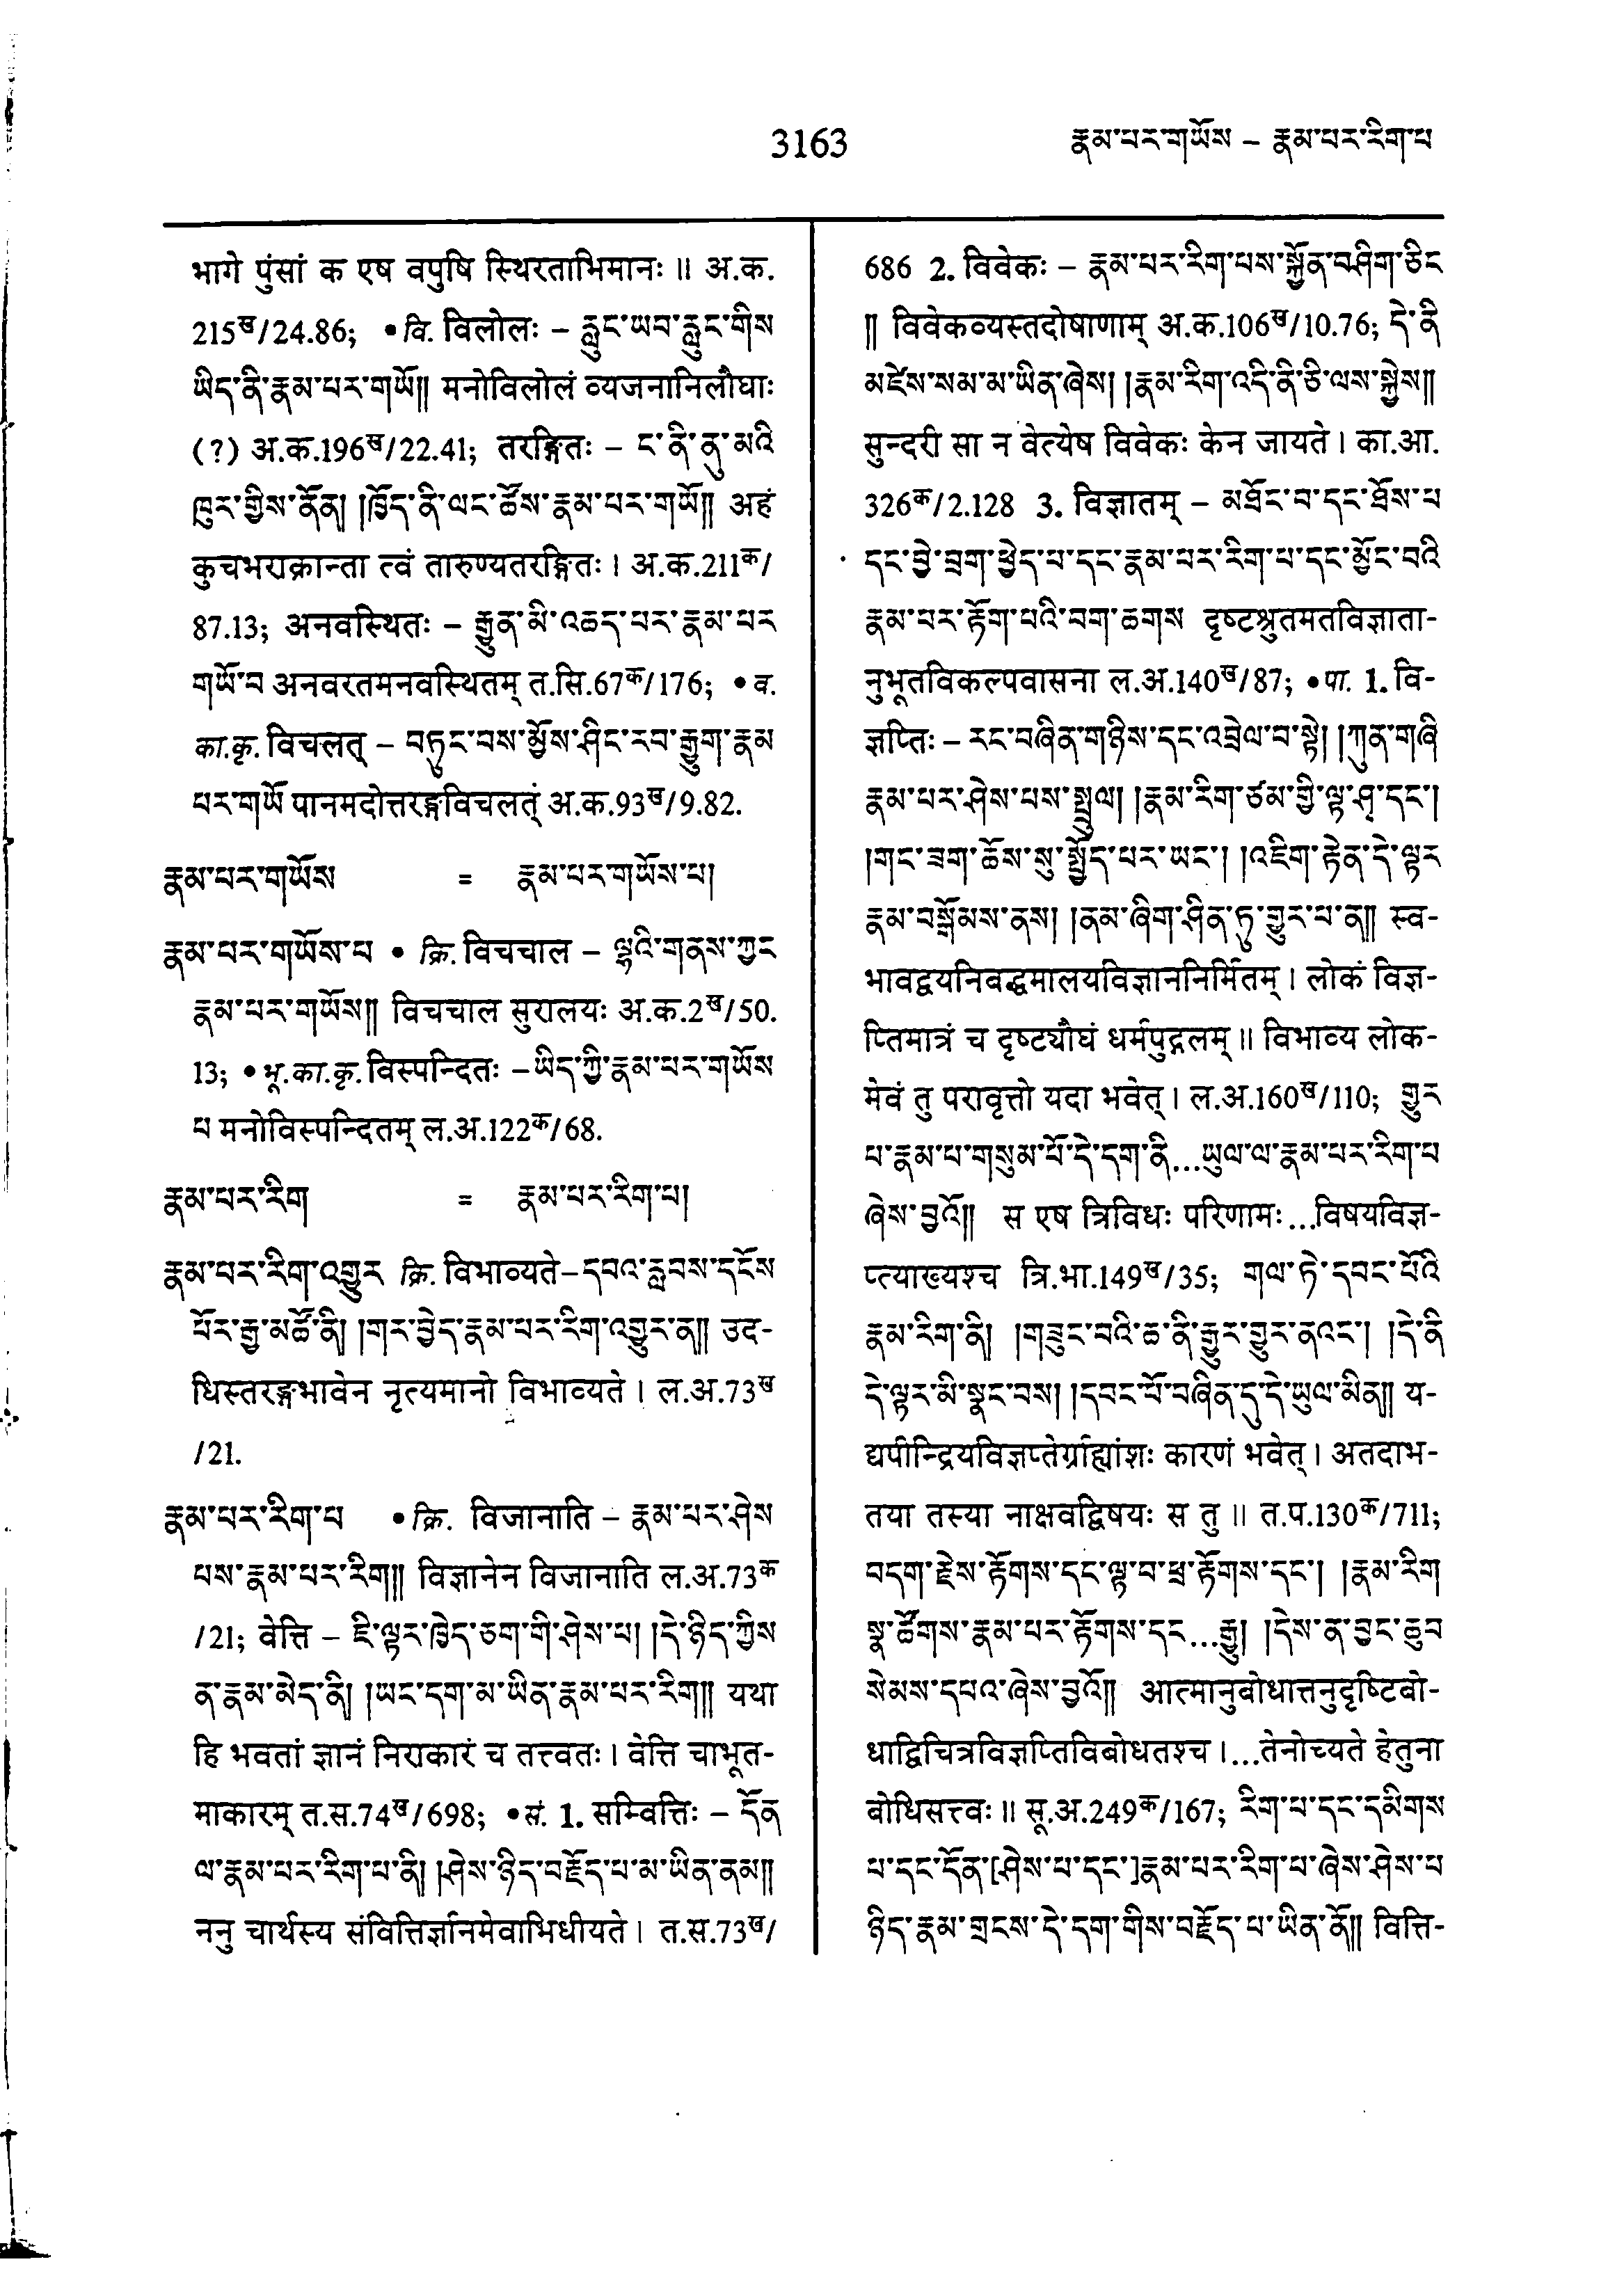 3163
རྣམ་པར་གཡོས – རྣམ་པར་རིག་པ
भागे पुंसां क एष वपुषि स्थिरताभिमानः ॥ अ.क.
215ख/24.86; • वि. विलोलः – རླུང་ཡབ་རླུང་གིས
ཡིད་ནི་རྣམ་པར་གཡོ༎ मनोविलोलं व्यजनानिलौघाः
(?) अ.क.196ख/22.41; तरङ्गितः – ང་ནི་ནུ་མའི
ཁུར་གྱིས་ནོན། །ཁྱོད་ནི་ལང་ཚོས་རྣམ་པར་གཡོ༎ अहं
कुचभराक्रान्ता त्वं तारुण्यतरङ्गितः । अ.क.211क/
87.13; अनवस्थितः – རྒྱུན་མི་འཆད་པར་རྣམ་པར
གཡོ་བ अनवरतमनवस्थितम् त.सि.67क/176; • व.
का.कृ. विचलत् – བཏུང་བས་མྱོས་ཤིང་རབ་རྒྱུག་རྣམ
པར་གཡོ पानमदोत्तरङ्गविचलत् अ.क.93ख/9.82.
རྣམ་པར་གཡོས = རྣམ་པར་གཡོས་པ།
རྣམ་པར་གཡོས་པ • क्रि. विचचाल – ལྷའི་གནས་ཀྱང
རྣམ་པར་གཡོས༎ विचचाल सुरालयः अ.क.2ख/50.
13; • भू.का.कृ. विस्पन्दितः – ཡིད་ཀྱི་རྣམ་པར་གཡོས
པ मनोविस्पन्दितम् ल.अ.122क/68.
རྣམ་པར་རིག = རྣམ་པར་རིག་པ།
རྣམ་པར་རིག་འགྱུར क्रि. विभाव्यते – དབའ་རླབས་དངོས
པོར་རྒྱ་མཚོ་ནི། །གར་བྱེད་རྣམ་པར་རིག་འགྱུར་ན༎ उद-
धिस्तरङ्गभावेन नृत्यमानो विभाव्यते । ल.अ.73ख
/21.
རྣམ་པར་རིག་པ • क्रि. विजानाति – རྣམ་པར་ཤེས
པས་རྣམ་པར་རིག༎ विज्ञानेन विजानाति ल.अ.73क
/21; वेत्ति – ཇི་ལྟར་ཁྱེད་ཅག་གི་ཤེས་པ། །དེ་ཉིད་ཀྱིས
ན་རྣམ་མེད་ནི། །ཡང་དག་མ་ཡིན་རྣམ་པར་རིག༎ यथा
हि भवतां ज्ञानं निराकारं च तत्त्वतः । वेत्ति चाभूत-
माकारम् त.स.74ख/698; • सं. 1. सम्वित्तिः – དོན
ལ་རྣམ་པར་རིག་པ་ནི། །ཤེས་ཉིད་བརྗོད་པ་མ་ཡིན་ནམ༎
ननु चार्थस्य संवित्तिर्ज्ञानमेवाभिधीयते । त.स.73ख/
686 2. विवेकः – རྣམ་པར་རིག་པས་སྐྱོན་བཤིག་ཅིང
༎ विवेकव्यस्तदोषाणाम् अ.क.106ख/10.76; དེ་ནི
མཛེས་སམ་མ་ཡིན་ཞེས། །རྣམ་རིག་འདི་ནི་ཅི་ལས་སྐྱེས༎
सुन्दरी सा न वेत्येष विवेकः केन जायते । का.आ.
326क/2.128 3. विज्ञातम् – མཐོང་བ་དང་ཐོས་པ
དང་བྱེ་བྲག་ཕྱེད་པ་དང་རྣམ་པར་རིག་པ་དང་མྱོང་བའི
རྣམ་པར་རྟོག་པའི་བག་ཆགས दृष्टश्रुतमतविज्ञाता-
नुभूतविकल्पवासना ल.अ.140ख/87; • पा. 1. वि-
ज्ञप्तिः – རང་བཞིན་གཉིས་དང་འབྲེལ་བ་སྟེ། །ཀུན་གཞི
རྣམ་པར་ཤེས་པས་སྤྲུལ། །རྣམ་རིག་ཙམ་གྱི་ལྟ་ཤ་དང་།
།གང་ཟག་ཆོས་སུ་སྤྱོད་པར་ཡང་། །འཇིག་རྟེན་དེ་ལྟར
རྣམ་བསྒོམས་ནས། །ནམ་ཞིག་ཤིན་ཏུ་གྱུར་པ་ན༎ स्व-
भावद्वयनिबद्धमालयविज्ञाननिर्मितम् । लोकं विज्ञ-
प्तिमात्रं च दृष्ट्यौघं धर्मपुद्गलम् ॥ विभाव्य लोक-
मेवं तु परावृत्तो यदा भवेत् । ल.अ.160ख/110; གྱུར
པ་རྣམ་པ་གསུམ་པོ་དེ་དག་ནི...ཡུལ་ལ་རྣམ་པར་རིག་པ
ཞེས་བྱའོ༎ स एष त्रिविधः परिणामः...विषयविज्ञ-
प्त्याख्यश्च त्रि.भा.149ख/35; གལ་ཏེ་དབང་པོའི
རྣམ་རིག་ནི། །གཟུང་བའི་ཆ་ནི་རྒྱུར་གྱུར་ནའང་། །དེ་ནི
དེ་ལྟར་མི་སྣང་བས། །དབང་པོ་བཞིན་དུ་དེ་ཡུལ་མིན༎ य-
द्यपीन्द्रियविज्ञप्तेर्ग्राह्यांशः कारणं भवेत् । अतदाभ-
तया तस्या नाक्षवद्विषयः स तु ॥ त.प.130क/711;
བདག་རྗེས་རྟོགས་དང་ལྟ་བ་ཕྲ་རྟོགས་དང་། །རྣམ་རིག
སྣ་ཚོགས་རྣམ་པར་རྟོགས་དང...རྒྱུ། །དེས་ན་བྱང་ཆུབ
སེམས་དཔའ་ཞེས་བྱའོ༎ आत्मानुबोधात्तनुदृष्टिबो-
धाद्विचित्रविज्ञप्तिविबोधतश्च ।...तेनोच्यते हेतुना
बोधिसत्त्वः ॥ सू.अ.249क/167; རིག་པ་དང་དམིགས
པ་དང་དོན་[ཤེས་པ་དང་]རྣམ་པར་རིག་པ་ཞེས་ཤེས་པ
ཉིད་རྣམ་གྲངས་དེ་དག་གིས་བརྗོད་པ་ཡིན་ནོ༎ वित्ति-